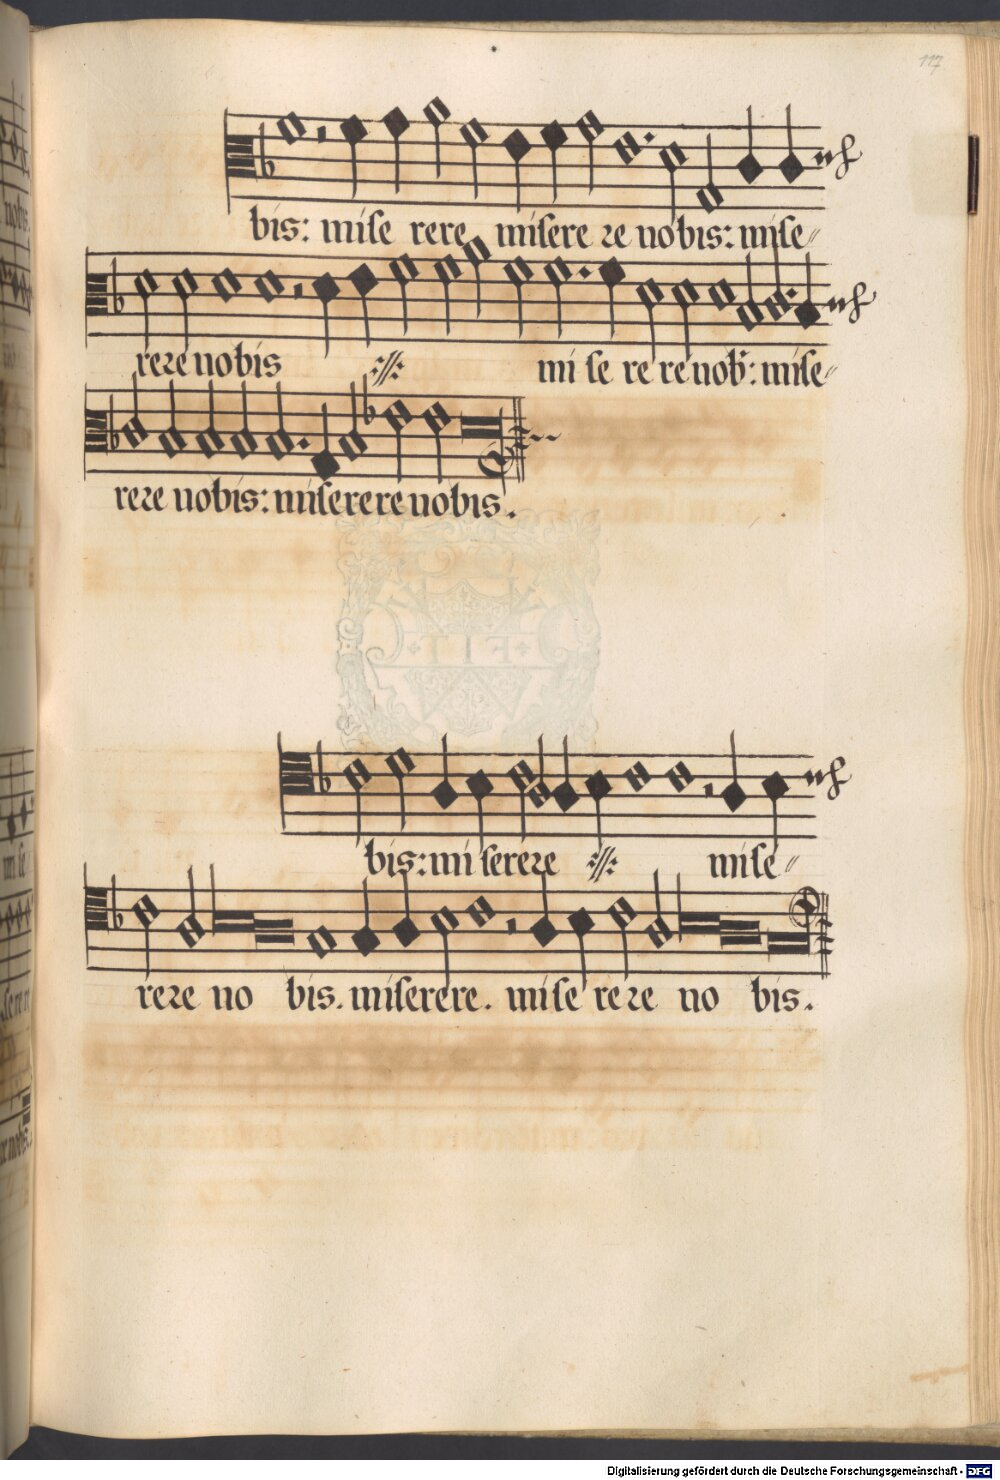 117
bis: mise rere miserere nobis: mise
rere nobis mi se re re nob: mise
rere nobis: miserere nobis.
bis: miserere mise
rere no bis. miserere. mise rere no bis.
Digitalisierung gefördert durch die Deutsche Forschungsgemeinschaft - DFG